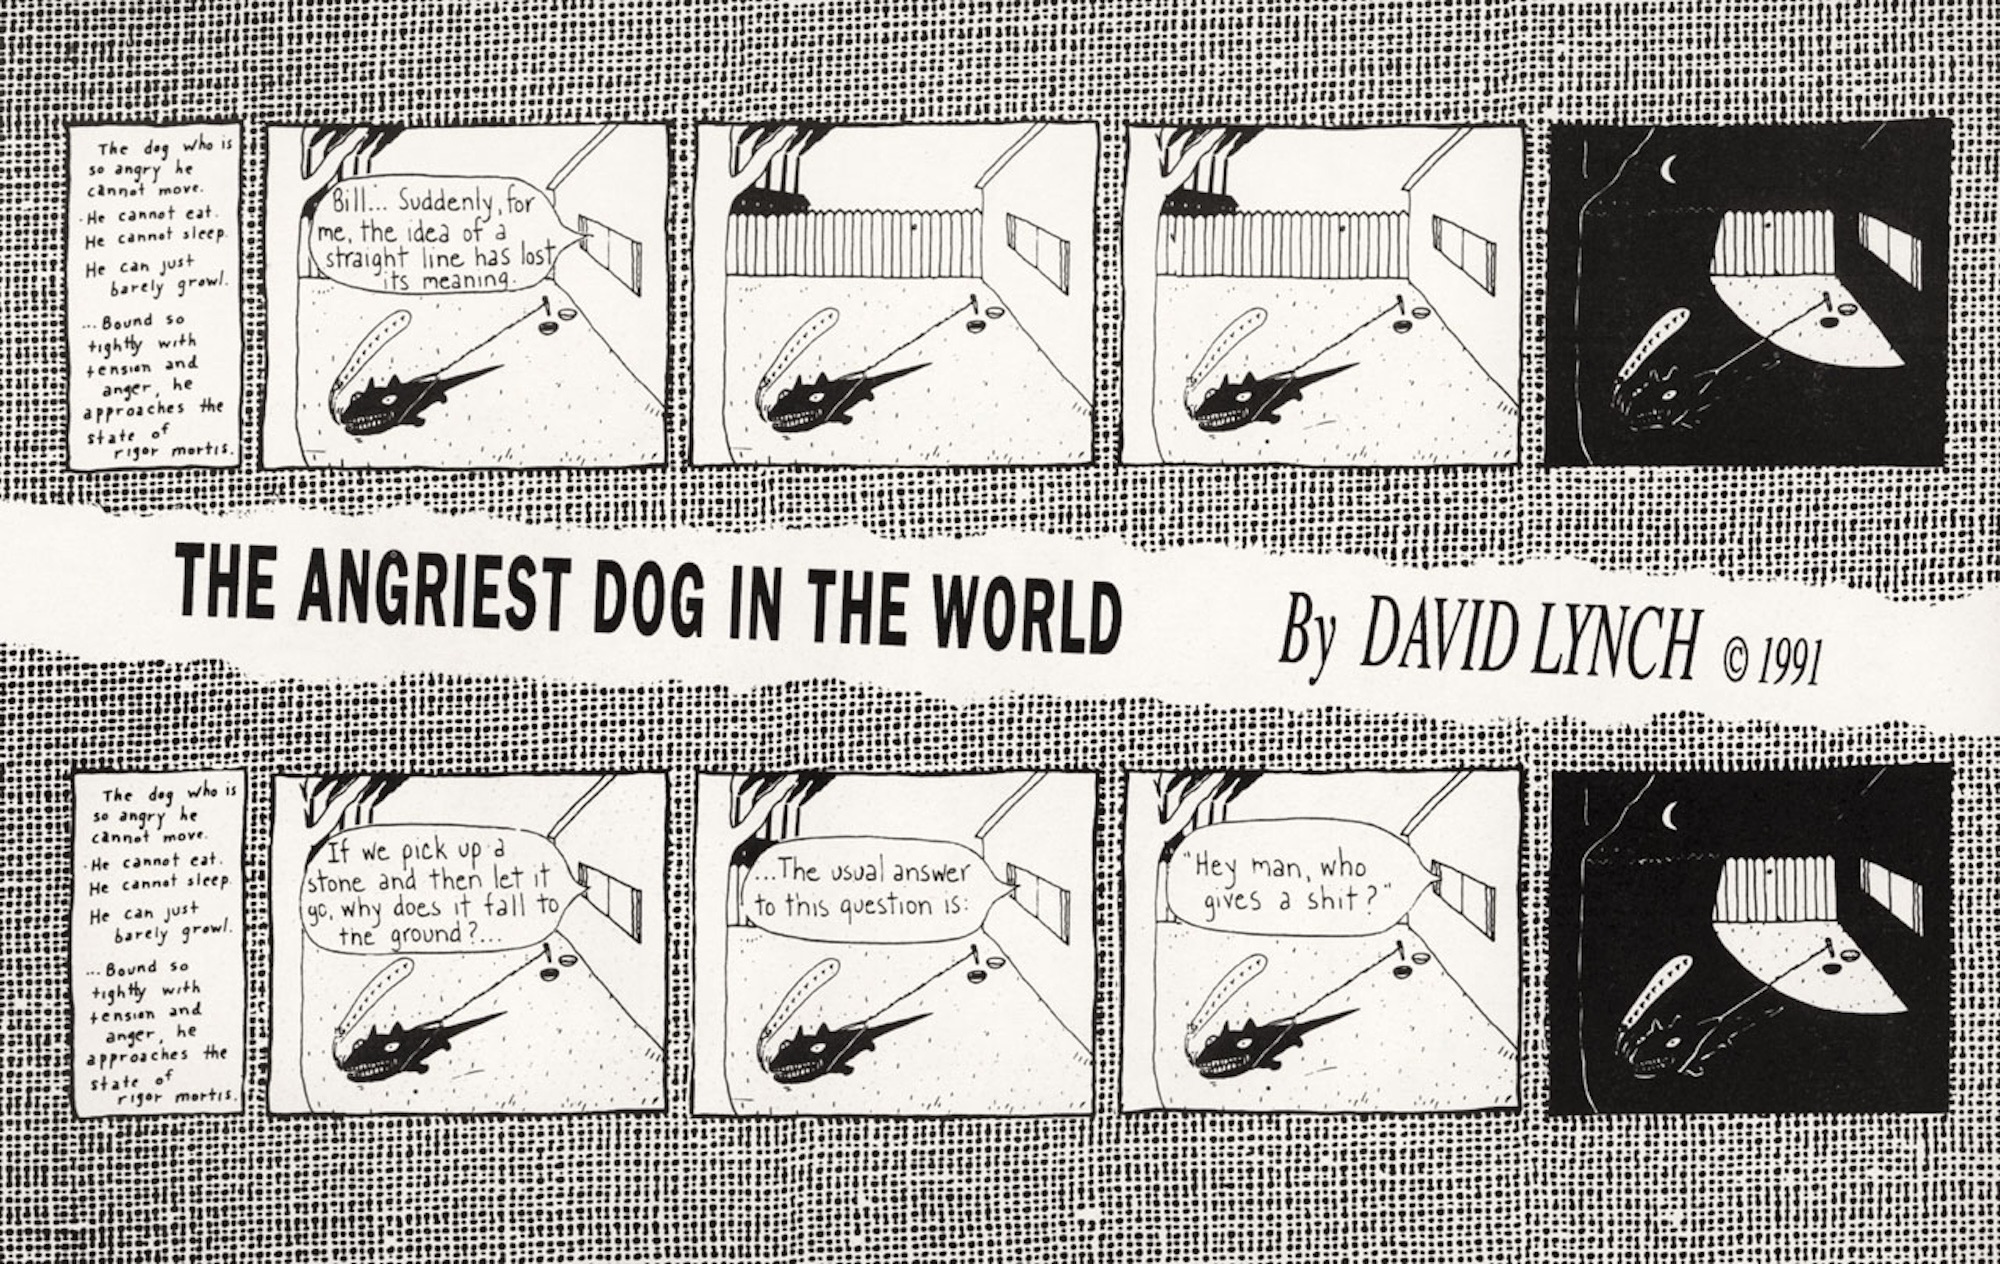 The dog who is
so angry he
cannot move.
He cannot eat.
He cannot sleep.
He can just
barely growl.
...Bound so
tightly with
tension and
anger, he
approaches the
state of
rigor mortis.
Bill... Suddenly, for
me, the idea of a
straight line has lost
its meaning.
THE ANGRIEST DOG IN THE WORLD
By DAVID LYNCH © 1991
The dog who is
so angry he
cannot move.
He cannot eat.
He cannot sleep.
He can just
barely growl.
...Bound so
tightly with
tension and
anger, he
approaches the
state of
rigor mortis.
If we pick up a
stone and then let it
go, why does it fall to
the ground?...
...The usual answer
to this question is:
"Hey man, who
gives a shit?"